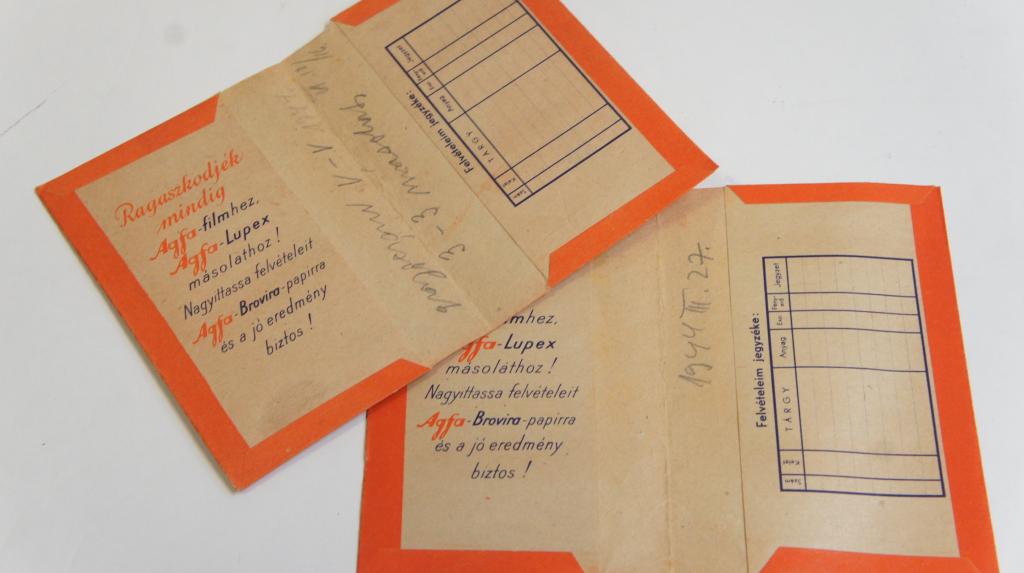 Ragaszkodjék
mindig
Agfa-filmhez,
Agfa-Lupex
másolathoz!
Nagyíttassa felvételeit
Agfa-Brovira-papirra
és a jó eredmény
biztos!
Felvételeim jegyzéke:
Szám
Kelt
TÁRGY
Anyag
Jegyzet
mhez,
Agfa-Lupex
másoláthoz!
Nagyíttassa felvételeit
Agfa-Brovira-papirra
és a jó eredmény
biztos!
1944 III. 27.
Felvételeim jegyzéke:
Szám
Kelt
TÁRGY
Anyag
Exp.
Jegyzet